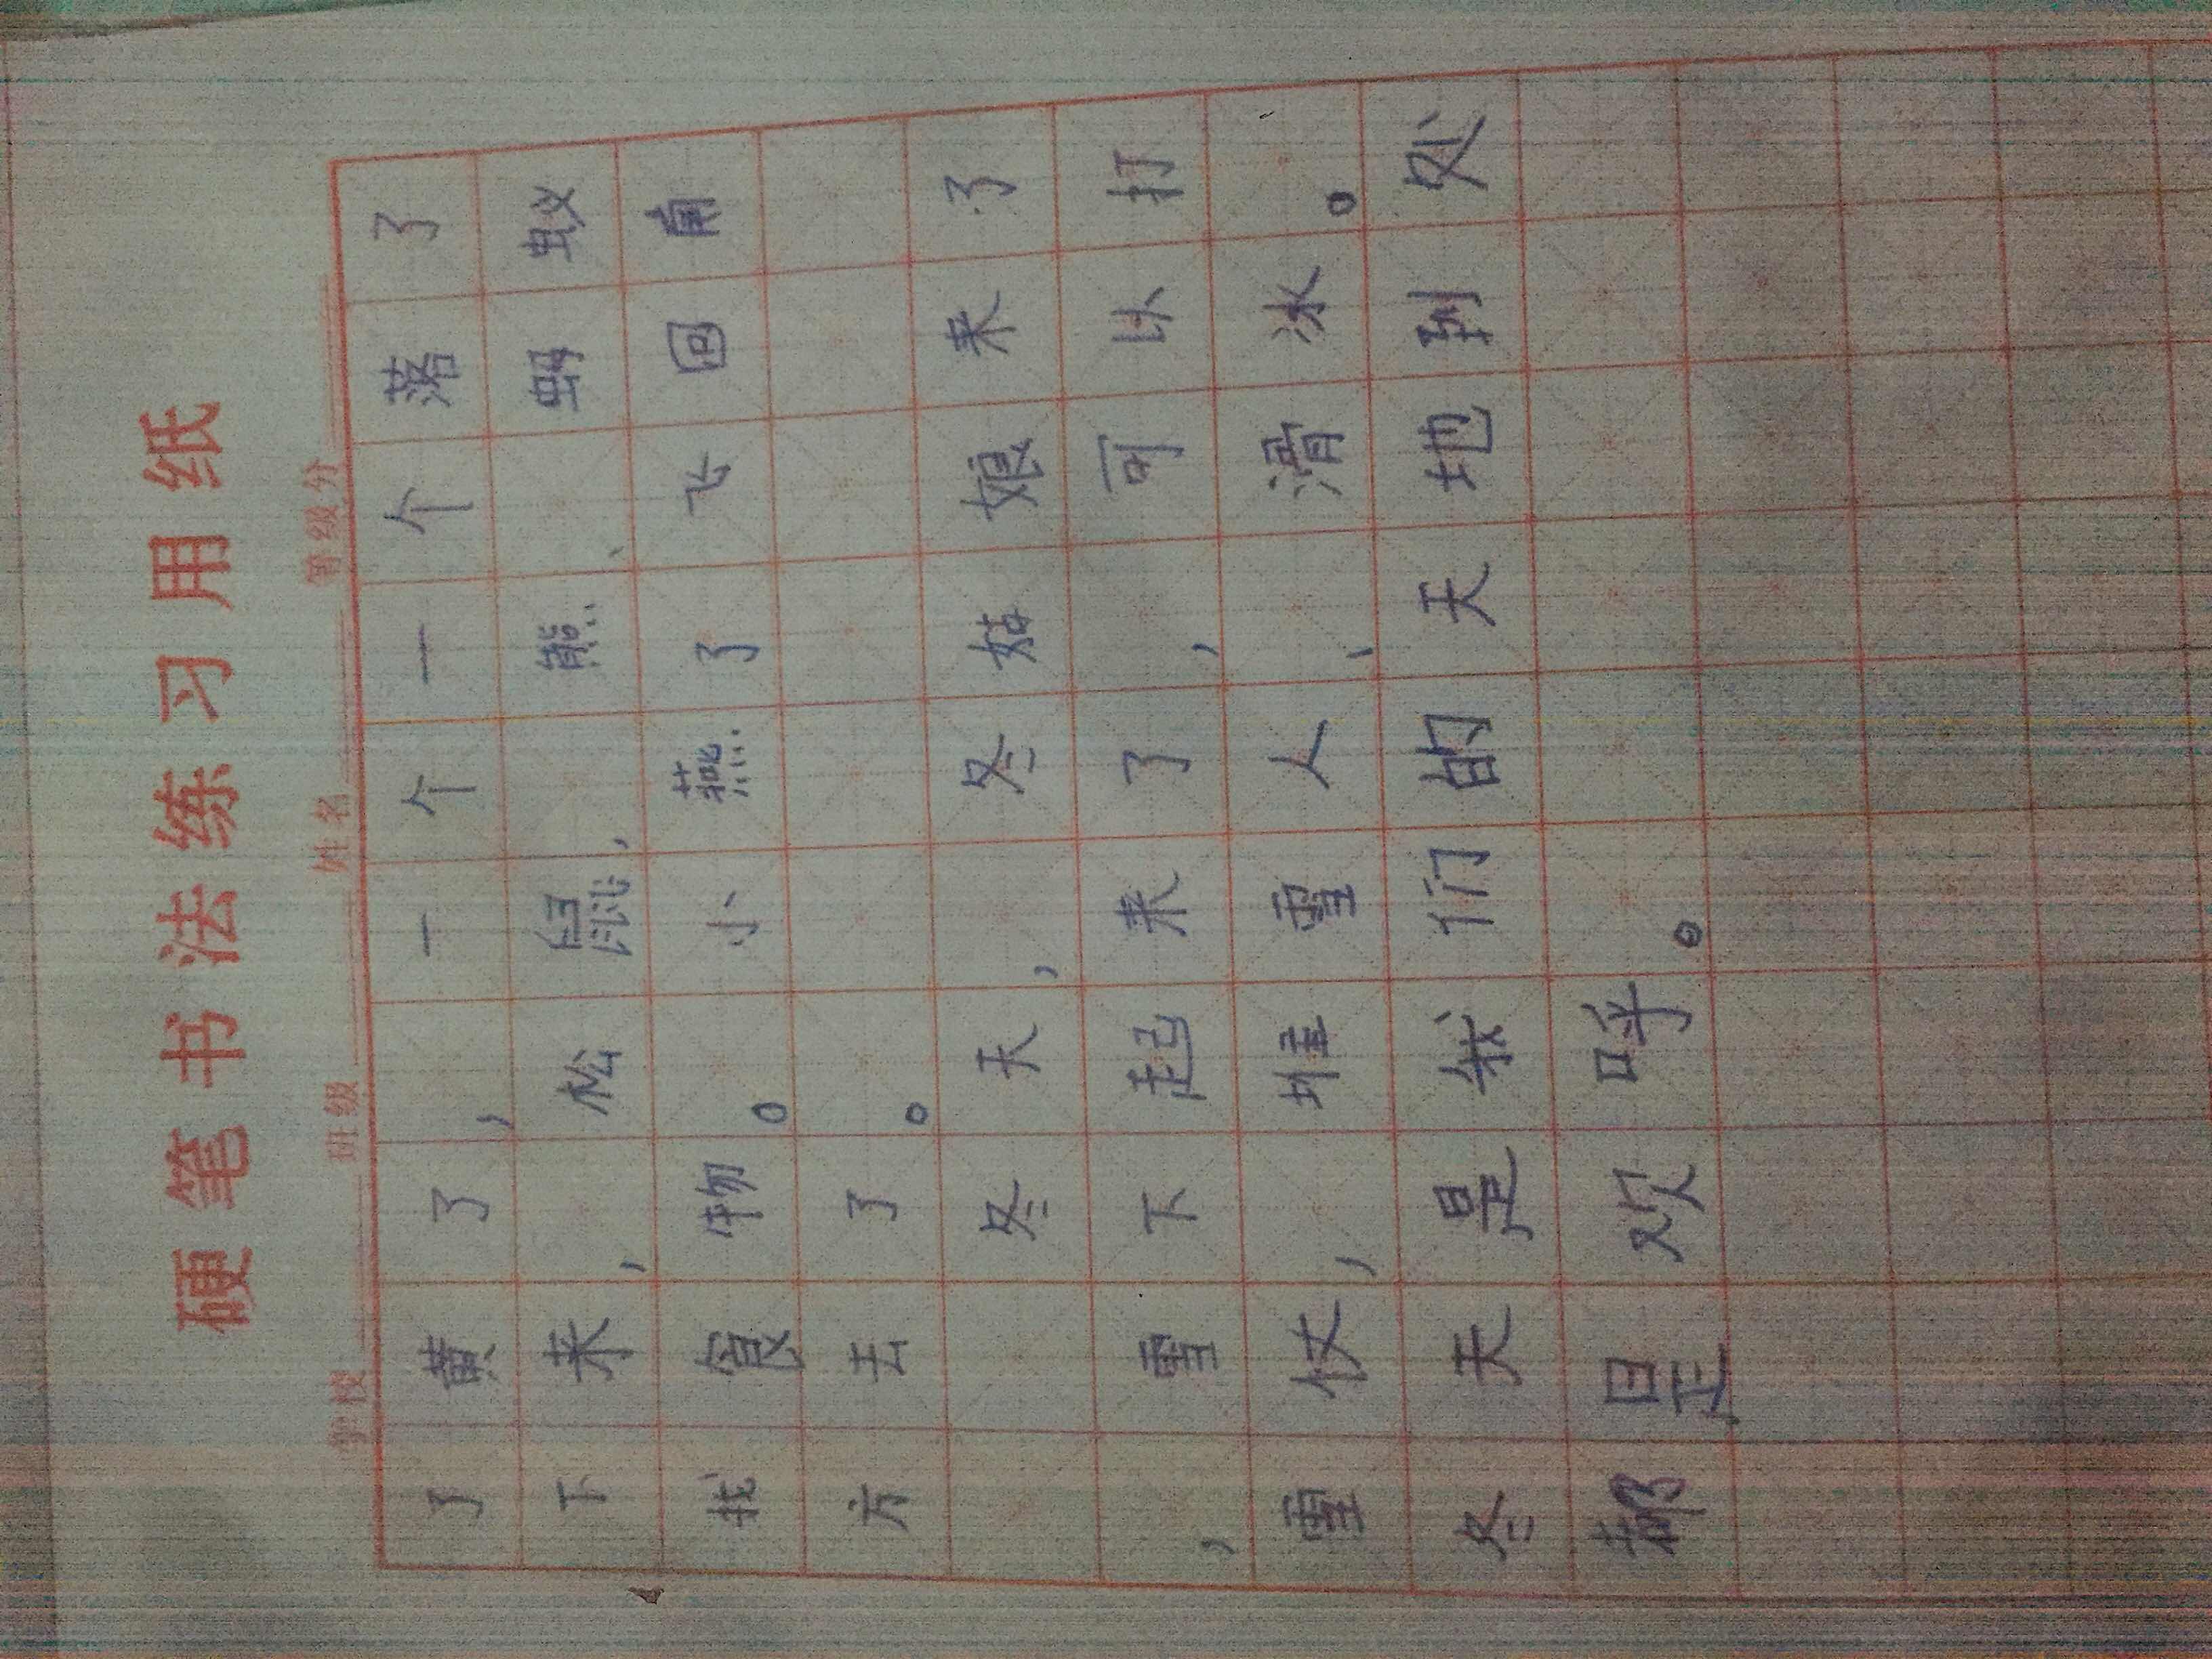 硬笔书法练习用纸
学校 班级 姓名 等级分
了黄了，一个一个落了
下来，松鼠，熊、蚂蚁
找食物。小燕了飞回南
方去了。
冬天，冬姑娘来了
，雪下起来了，可以打
雪仗，堆雪人、滑冰。
冬天是我们的天地到处
都是欢呼。